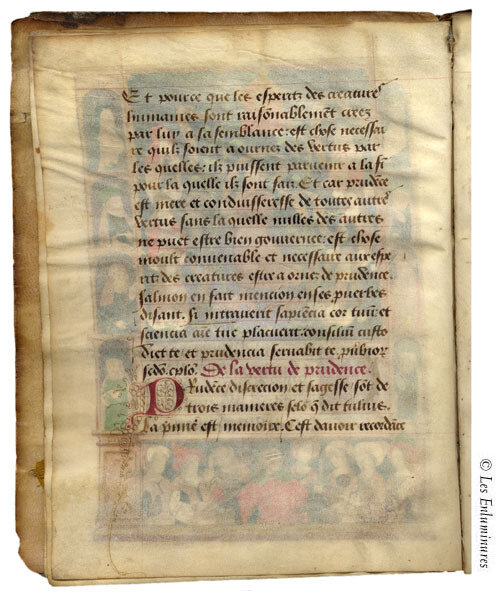 Et pource que les esperitz des creatures
humaines sont raisonnablement creez
par luy a sa semblance: est chose necessai
re quilz soient aournez des vertus par
les quelles: ilz puissent parvenir a la fi
pour la quelle ilz sont faiz. Et car prudēce
est mere et conduisseresse de toutes autres
vertus sans la quelle nulles des autres
ne puet estre bien gouvernee: est chose
moult convenable et necessaire aux espe
ritz des creatures estre a ornez de prudence.
Salmon en fait mencion en ses puerbes
disant. Si intraverit sapiēcia cor tuum et
sciencia aīe tue placuerit: consilium custo
diet te et prudencia servabit te. pūbior
sedō. cplō. De la vertu de prudence.
Prudēce discrecion et sagesse sōt de
trois manieres selō q̄ dit tulius.
La pmie est memoire. Cest davoir recordāce
© Les Enluminures